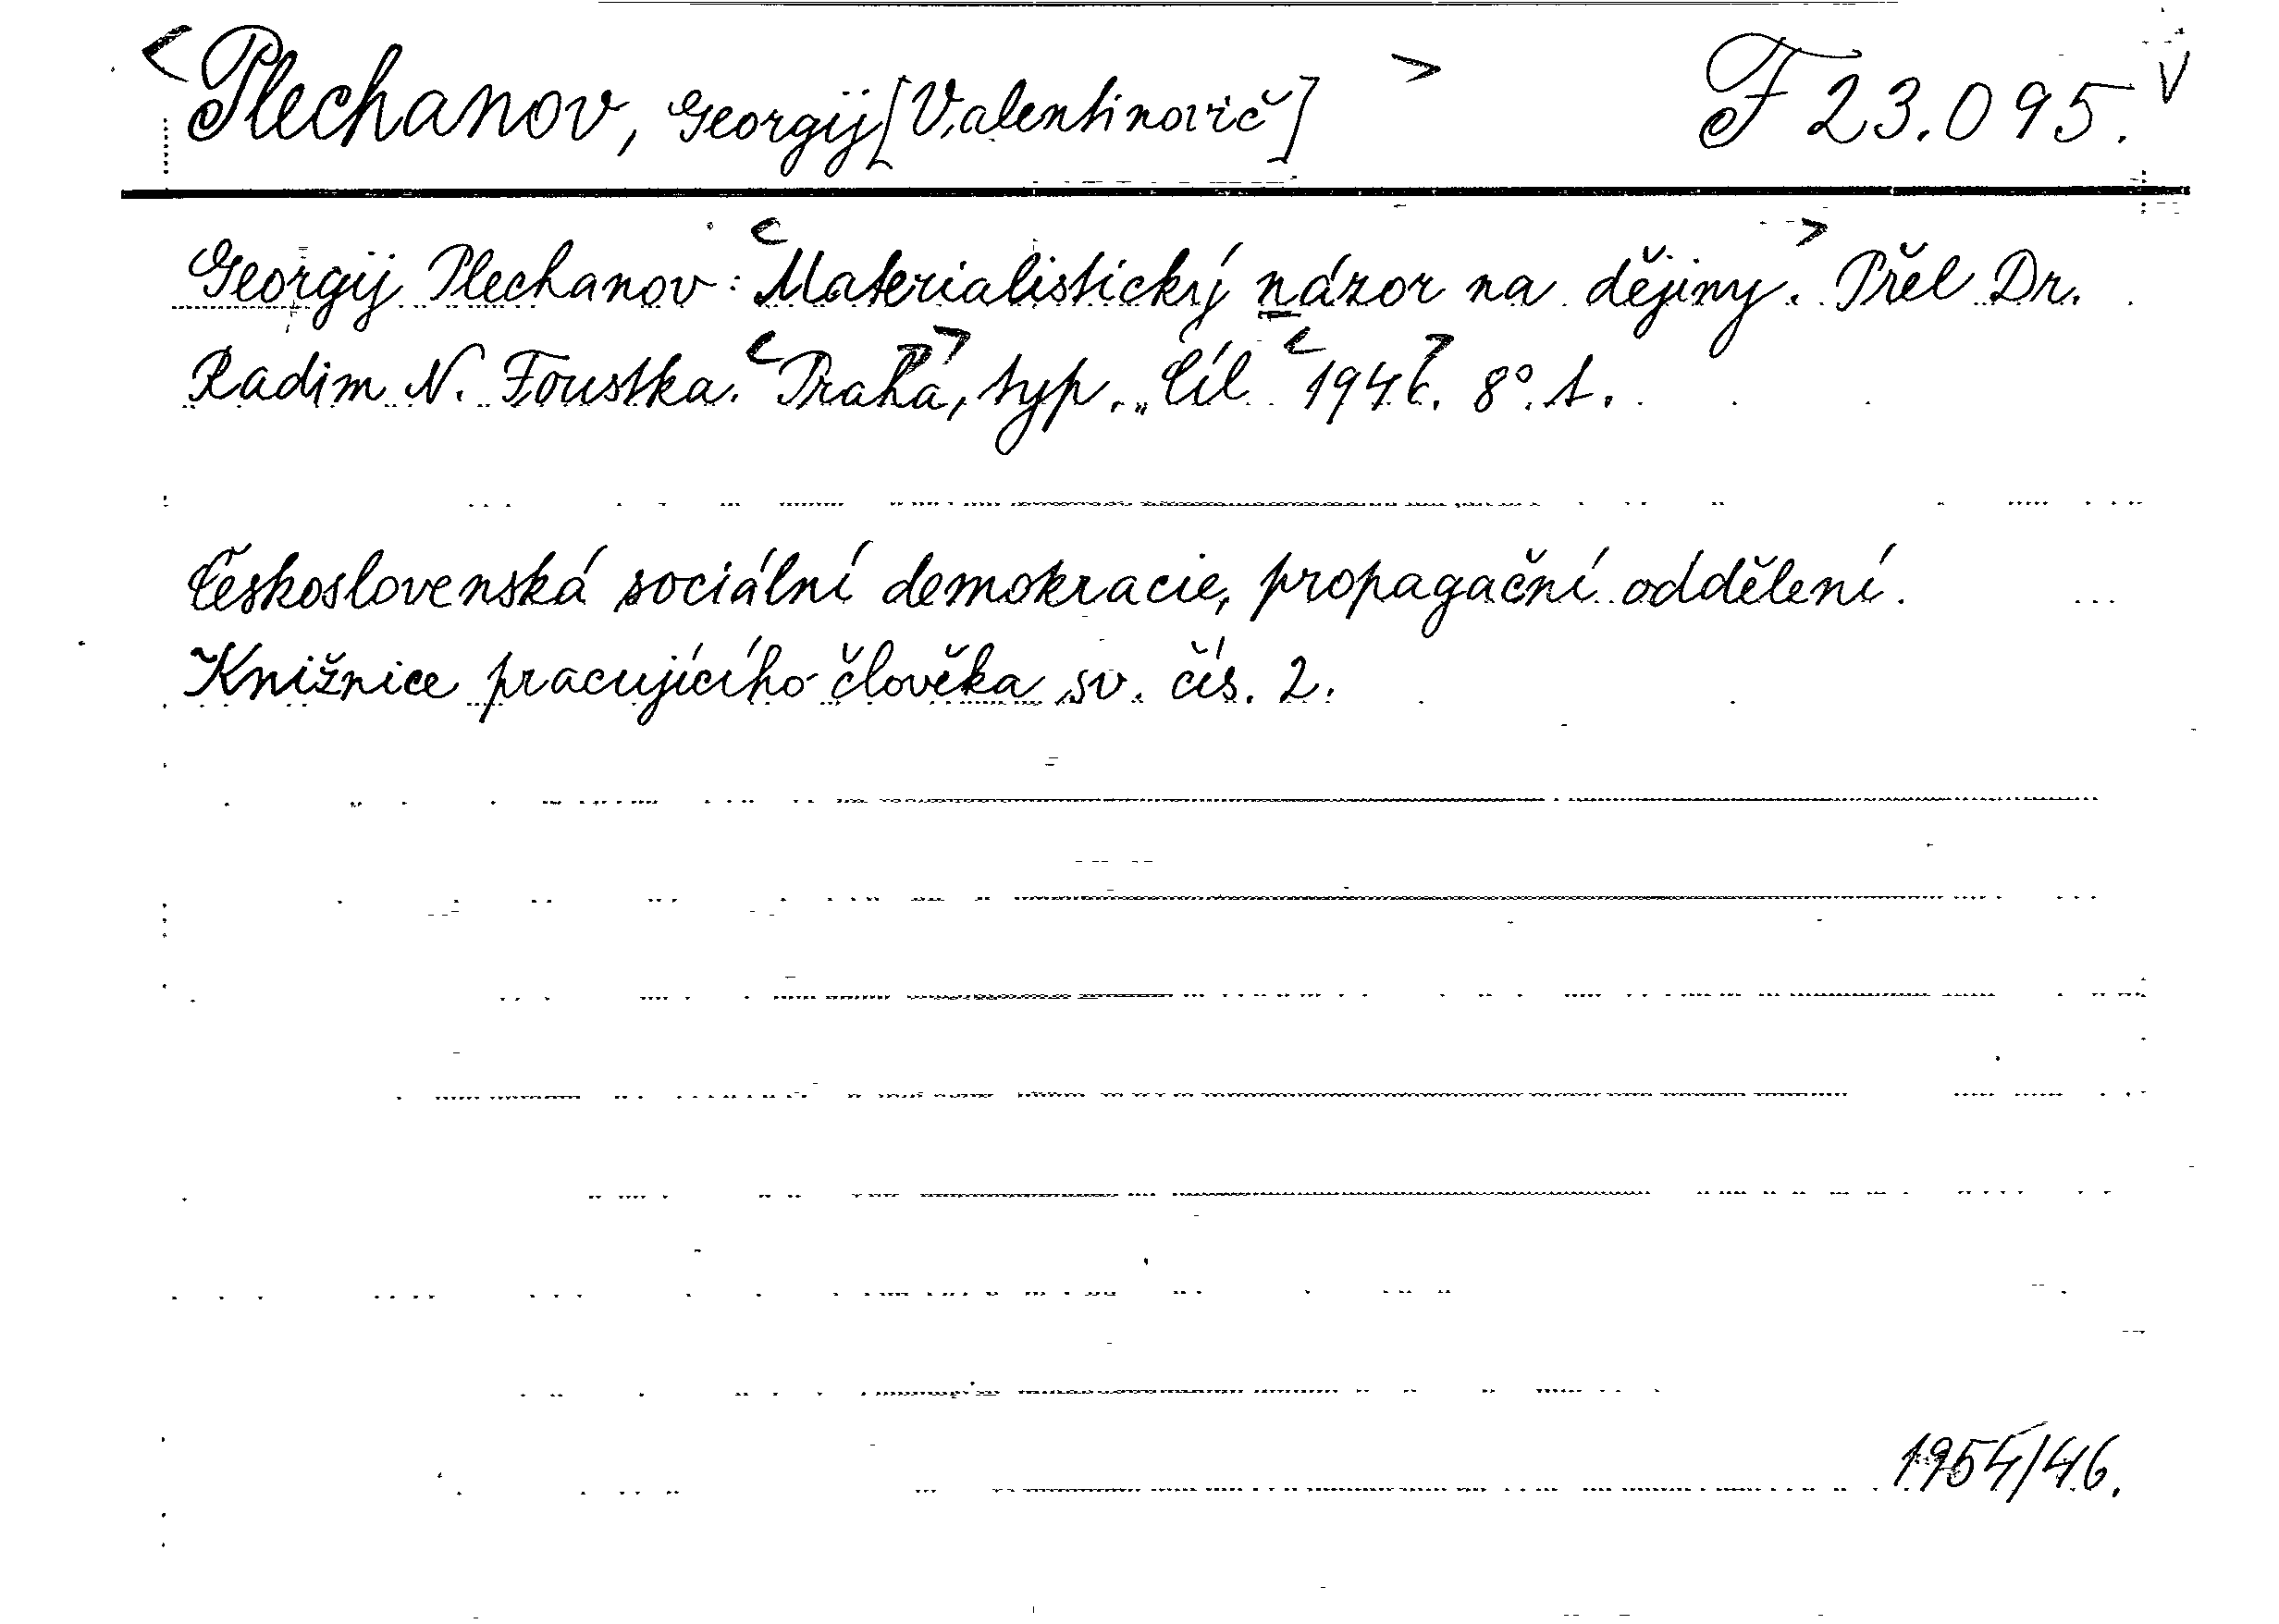 <Plechanov, Georgij [Valentinovič]> F 23.095.
Georgij Plechanov: <Materialistický názor na dějiny.> Přel Dr.
Radim N. Foustka. <Praha>, typ. „Cíl <1946>. 8°. 1.
Československá sociální demokracie, propagační oddělení.
Knižnice pracujícího člověka sv. čís. 2.
1954/46.